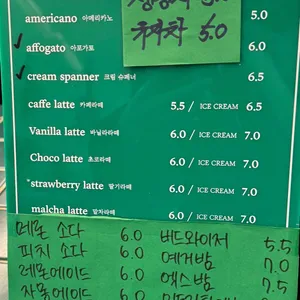 americano 아메리카노 5.0
affogato 아포가토 6.0
cream spanner 크림 슈페너 6.5
caffe latte 카페라떼 5.5 / ICE CREAM 6.5
Vanilla latte 바닐라라떼 6.0 / ICE CREAM 7.0
Choco latte 초코라떼 6.0 / ICE CREAM 7.0
*strawberry latte 딸기라떼 6.0 / ICE CREAM 7.0
malcha latte 말차라떼 6.0 / ICE CREAM 7.0
레몬 소다 6.0 버드와이저 5.5
피치 소다 6.0 예거밤 7.0
레몬에이드 6.0 엑스밤 7.5
자몽에이드 6.0